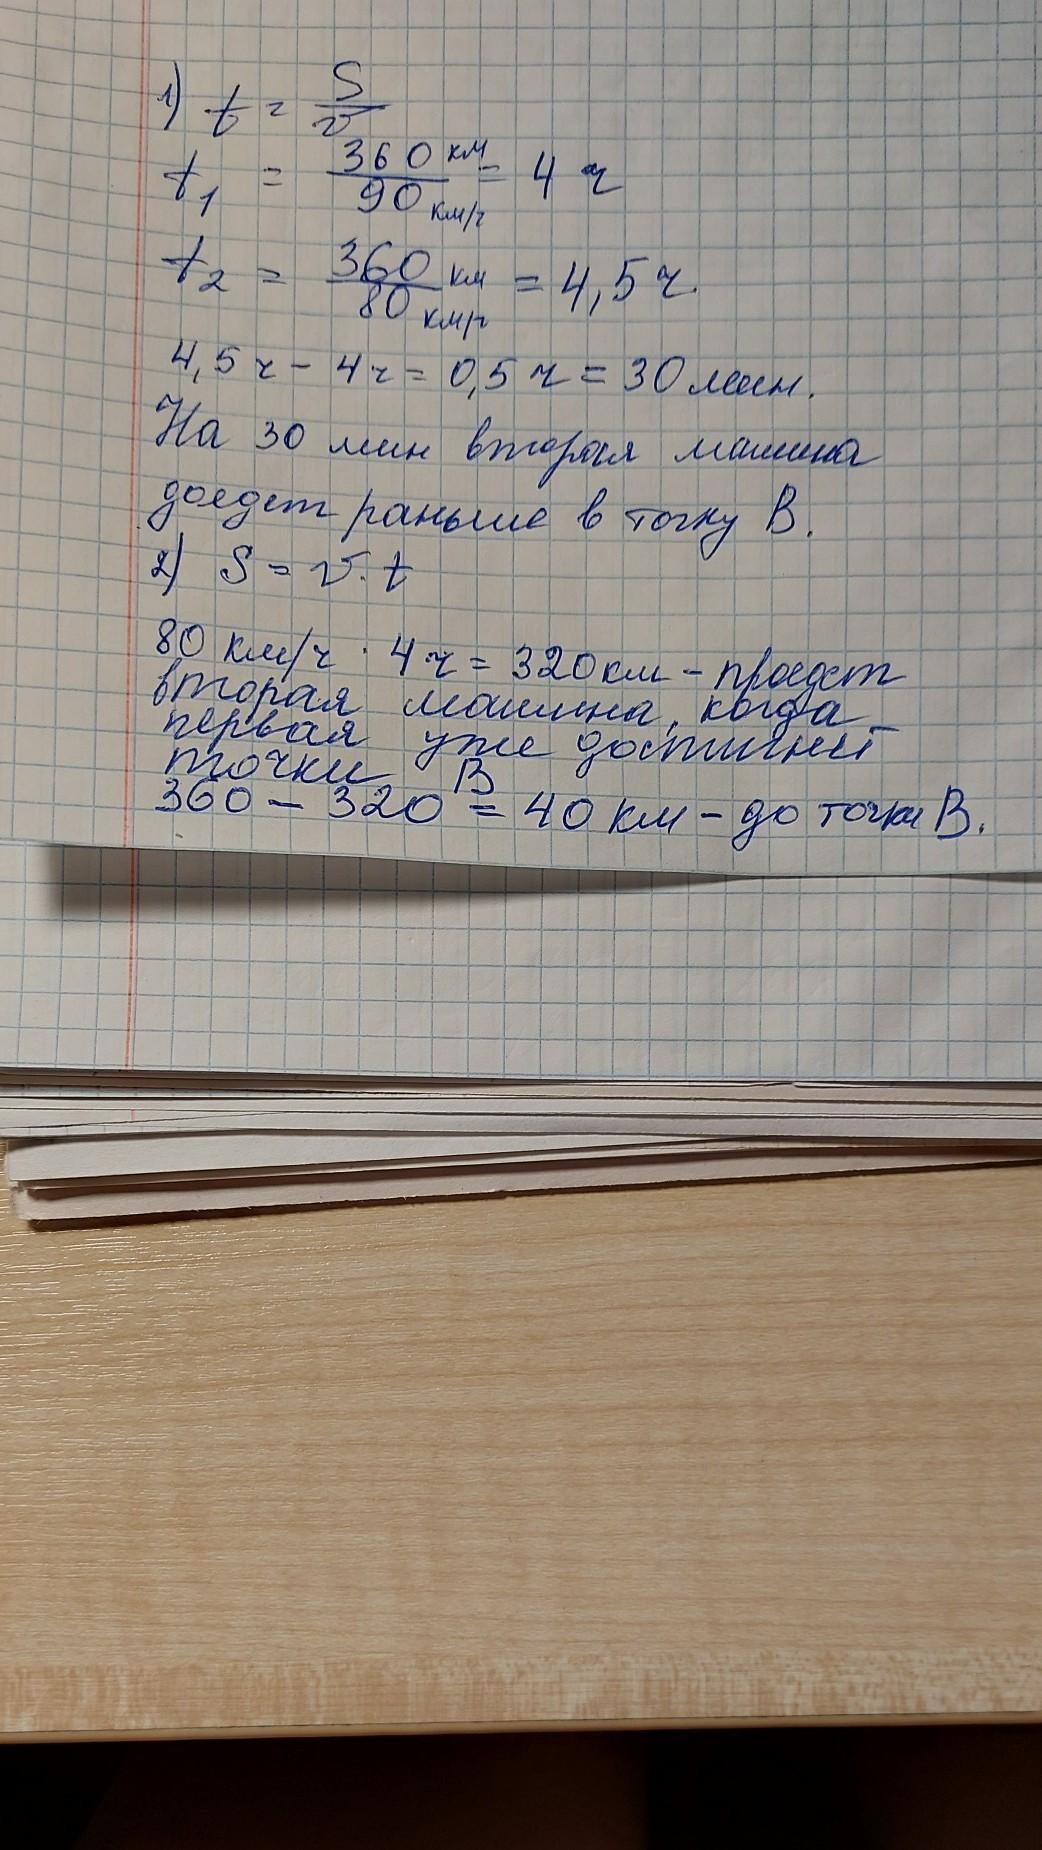 1) t = S/v
t₁ = 360 км / 90 км/ч = 4 ч
t₂ = 360 км / 80 км/ч = 4,5 ч.
4,5 ч - 4 ч = 0,5 ч = 30 мин.
На 30 мин вторая машина
доедет раньше в точку В.
2) S = v · t
80 км/ч · 4 ч = 320 км - проедет
вторая машина, когда
первая уже достигнет
точки В
360 - 320 = 40 км - до точки В.